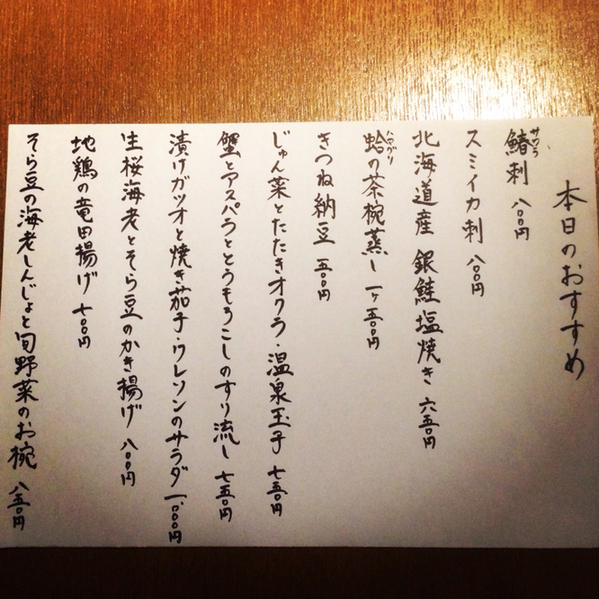 本日のおすすめ
鰆刺 八〇〇円
サワラ
スミイカ刺 八〇〇円
北海道産 銀鮭塩焼き 六五〇円
蛤の茶椀蒸し 一ケ五〇〇円
ハマグリ
きつね納豆 五〇〇円
じゅん菜とたたきオクラ・温泉玉子 七五〇円
蟹とアスパラととうもろこしのすり流し 七五〇円
漬けガツオと焼き茄子・クレソンのサラダ 一、〇〇〇円
生桜海老とそら豆のかき揚げ 八〇〇円
地鶏の竜田揚げ 七〇〇円
そら豆の海老しんじょと旬野菜のお椀 八五〇円